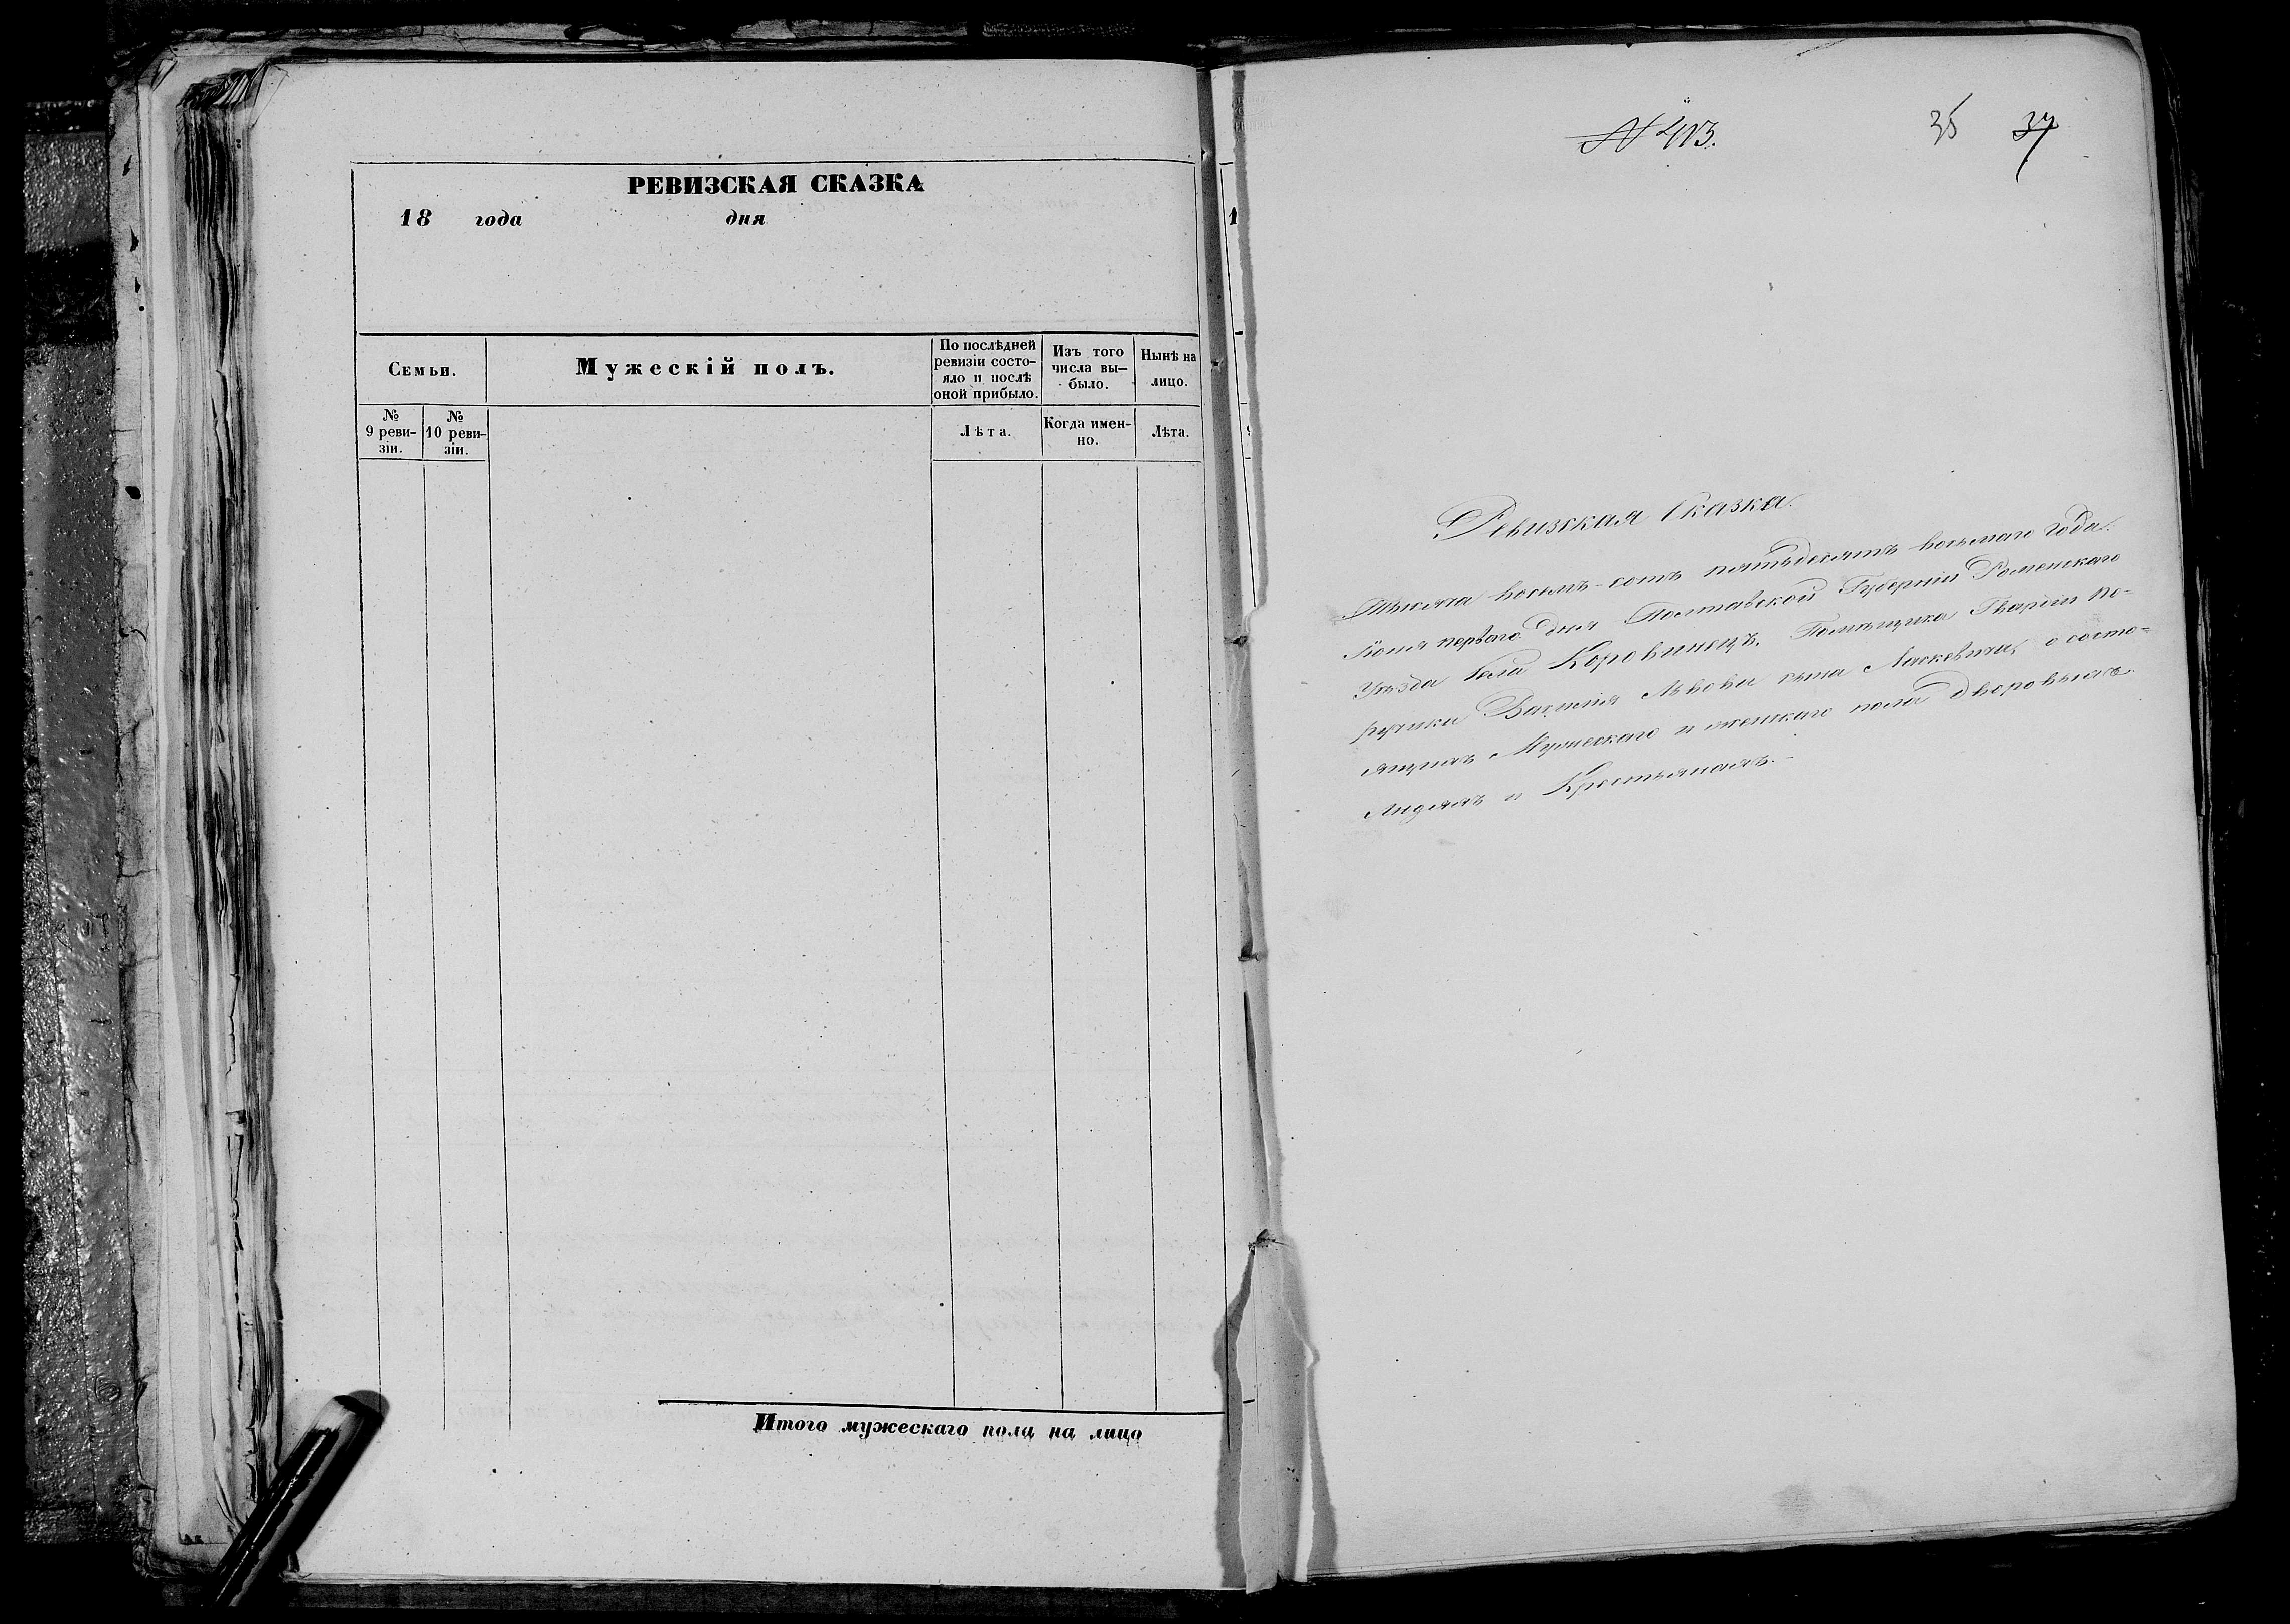 РЕВИЗСКАЯ СКАЗКА
18 года дня
Семьи.
Мужескій полъ.
По послѣдней
ревизіи состо-
яло и послѣ
оной прибыло.
Изъ того
числа вы-
было.
Нынѣ на
лицо.
№
9 реви-
зіи.
№
10 реви-
зіи.
Лѣта.
Когда имен-
но.
Лѣта.
Итого мужескаго пола на лицо
1
№ 413.
35 37
Ревизская Сказка.
Тысяча восемь-сотъ пятьдесятъ восьмаго года
Іюня перваго дня Полтавской Губерніи Роменскаго
Уѣзда Села Коровинецъ. Помѣщика Гвардіи По-
ручика Василія Львова сына Маскевича, о состо-
ящихъ Мужескаго и женскаго пола дворовыхъ
Людяхъ и Крестьянахъ.-